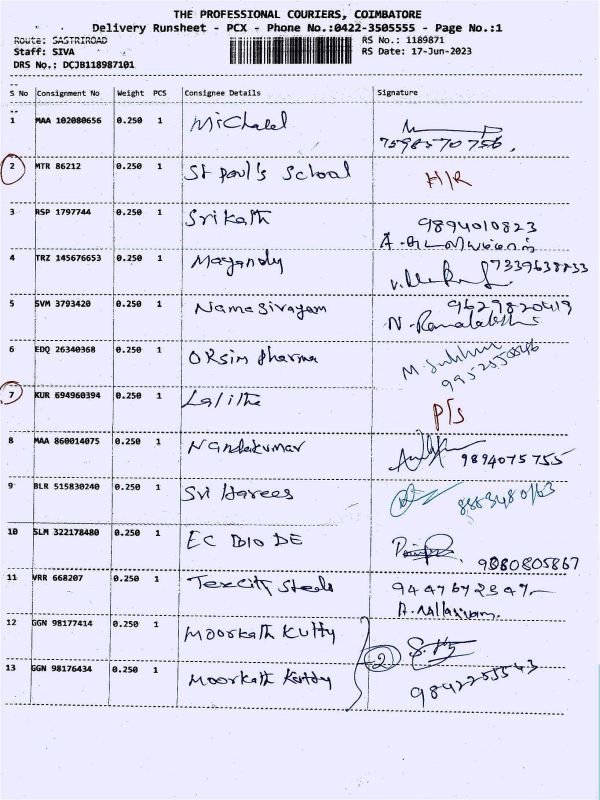 THE PROFESSIONAL COURIERS, COIMBATORE
Delivery Runsheet - PCX - Phone No.:0422-3505555 - Page No.:1
Route: SASTRIROAD RS No.: 1189871
Staff: SIVA RS Date: 17-Jun-2023
DRS No.: DCJB118987101
S No Consignment No Weight PCS Consignee Details Signature
1 MAA 102080656 0.250 1 Michalel
7598570756.
2 MTR 86212 0.250 1 St paul's School H/R
3 RSP 1797744 0.250 1 Srikath 9894010823
4 TRZ 145676653 0.250 1 Mayandy 7339638833
5 SVM 3793420 0.250 1 Namasivayam 9629820419
6 EDQ 26340368 0.250 1 Orsim Pharma
7 KUR 694960394 0.250 1 Lalitha P/s
8 MAA 860014075 0.250 1 Nandakumar 9894075755
9 BLR 515830240 0.250 1 Sri Harees
10 SLM 322178480 0.250 1 EC BIO DE
9080805867
11 VRR 668207 0.250 1 Texcity Steels
A. Nallasivam.
12 GGN 98177414 0.250 1 Moorkath Kutty
2
13 GGN 98176434 0.250 1 Moorkath Kutty 9842255543